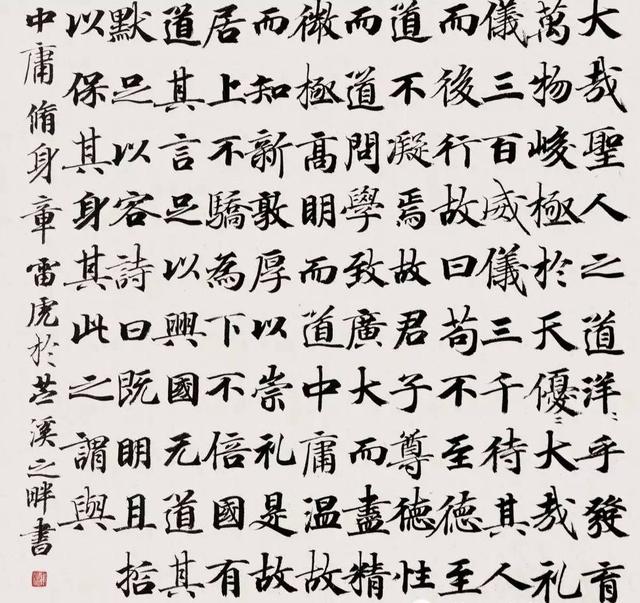 大哉聖人之道洋〻乎發育
萬物峻極於天優〻大哉礼
儀三百威儀三千待其人
而後行故曰苟不至德至
道不凝焉故君子尊德性
而道問學致廣大而盡精
微極高明而道中庸温故
而知新敦厚以崇礼是故
居上不驕為下不倍國有
道其言足以興國无道其
默足以容詩曰既明且哲
以保其身其此之謂與
中庸脩身章雷虎於苕溪之畔書